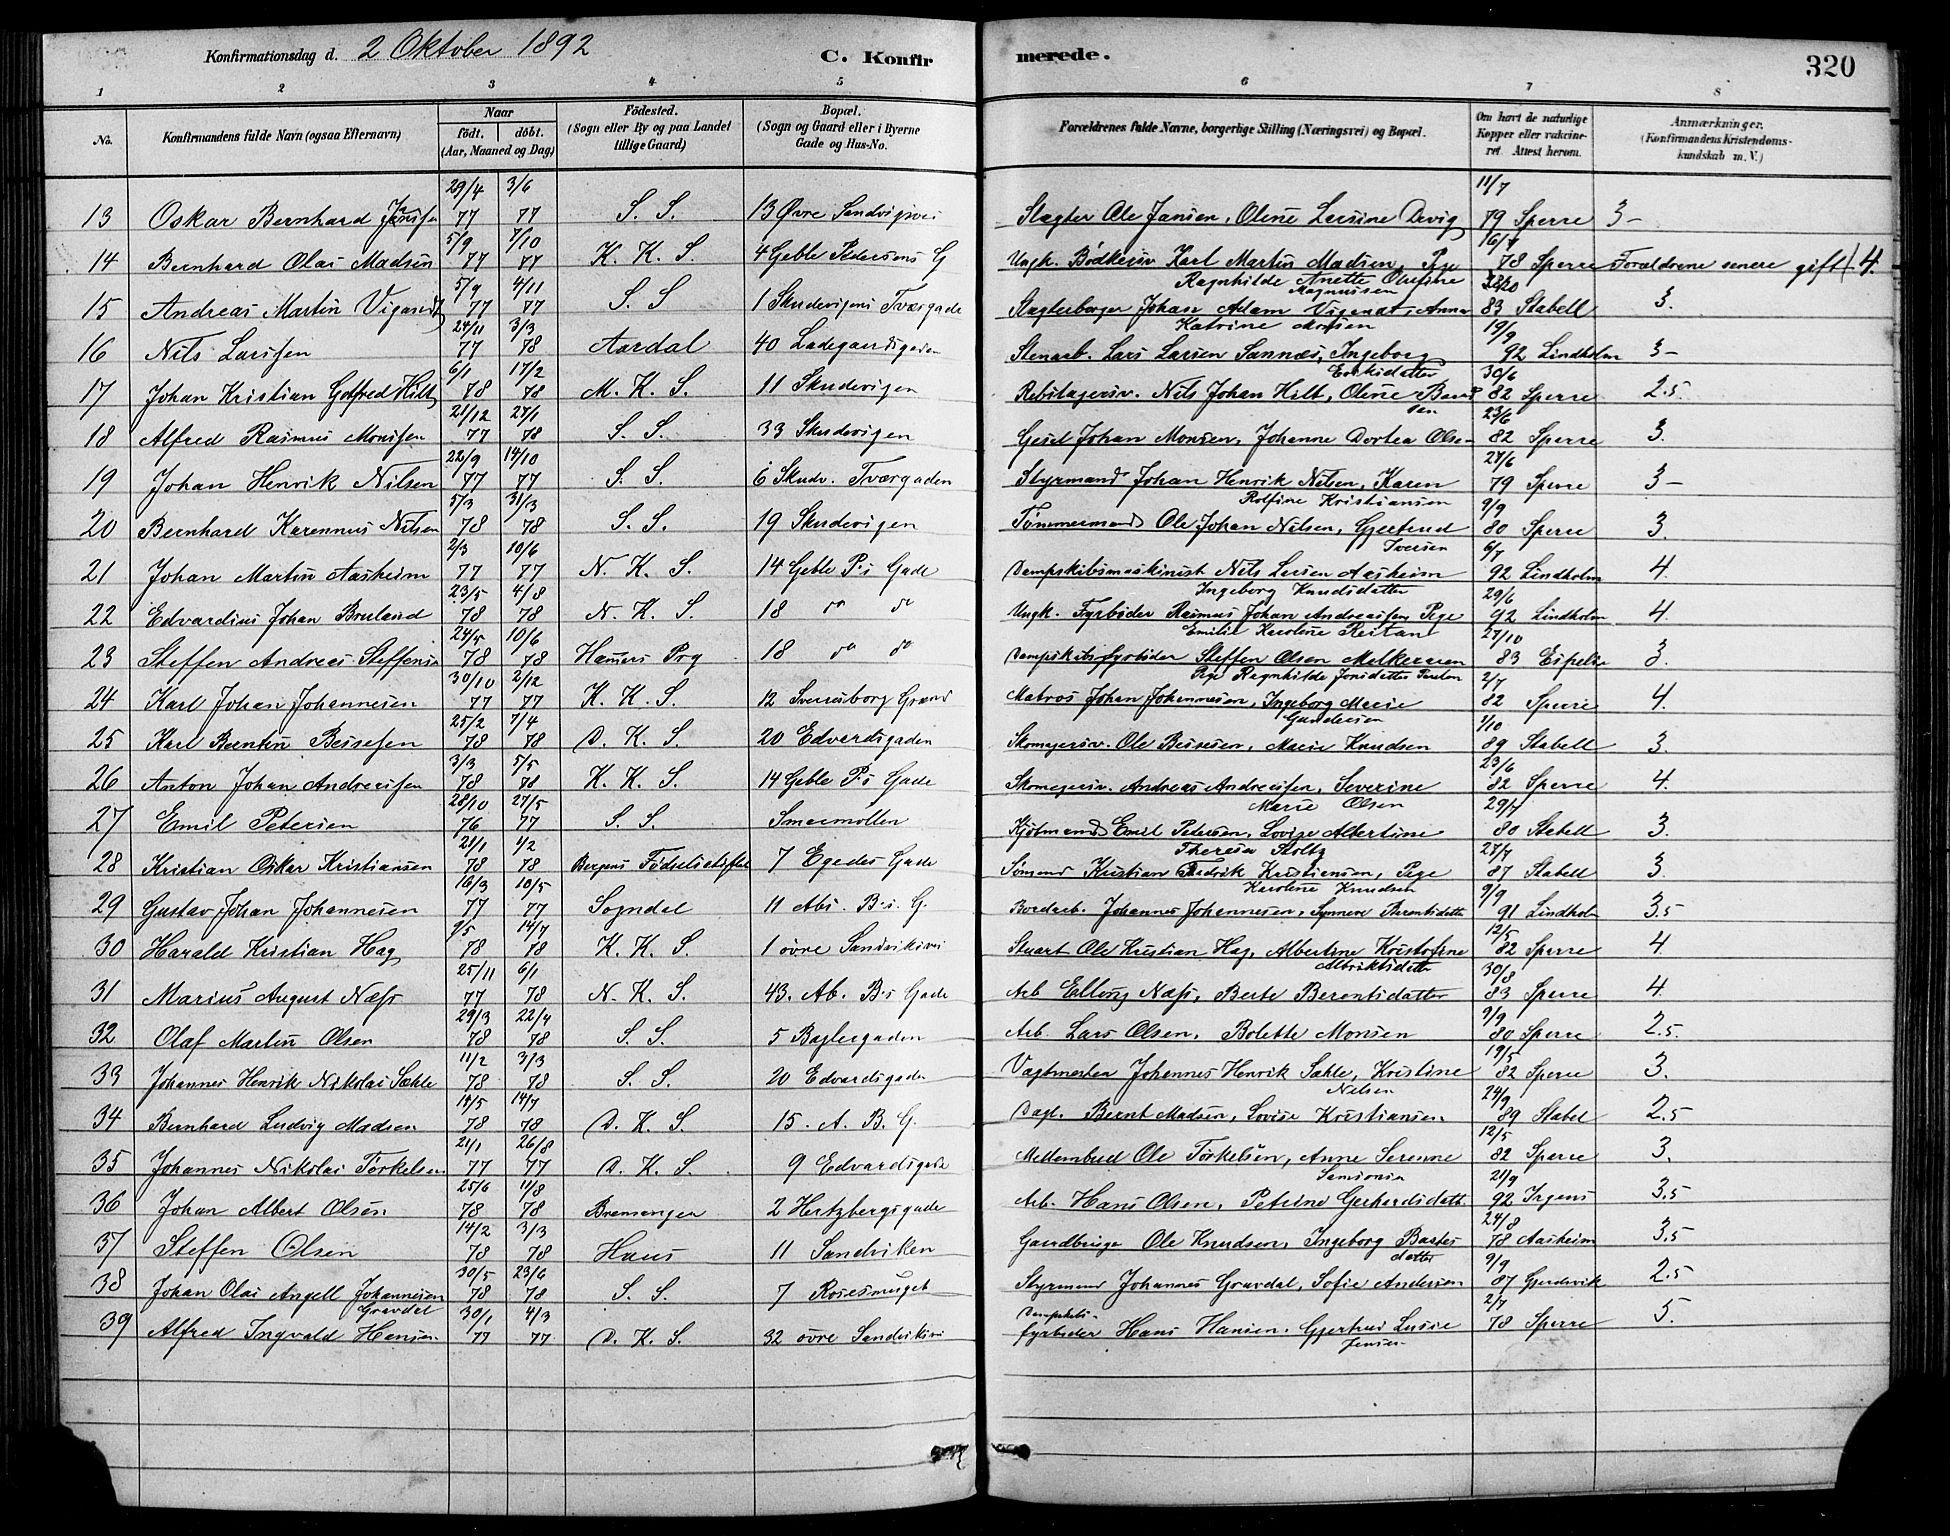 Konfirmationsdag d. 2 Oktober 1892
C. Konfirmerede.
320
1 2 3 4 5 6 7 8
No.
Konfirmandens fulde Navn (ogsaa Efternavn)
Naar
født. døbt.
(Aar, Maaned og Dag)
Fødested.
(Sogn eller By og paa Landet
tillige Gaard)
Bopæl.
(Sogn og Gaard eller i Byerne
Gade og Hus-No.
Forældrenes fulde Navne, borgerlige Stilling (Næringsvei) og Bopæl.
Om havt de naturlige
Kopper eller vakcine-
ret. Attest herom.
Anmærkninger.
(Konfirmandens Kristendoms-
kundskab m. V.)
13 Oskar Bernhard 29/4 77 3/6 77 S. S. 13 Øvre Sandvigsvei Slagter Ole Jansen, Olene Lersine Devig 11/7 79 Sperre 3-
14 Bernhard Olai Madsen 5/9 77 7/10 77 K. K. S. 4 Geble Pedersens G Ungk. Bødkersv Karl Martin Madsen, Pige Ragnhilde Anette Olufine Magnussen 16/7 78 Sperre Forældrene senere gift 4.
15 Andreas Martin Vigandt 5/9 77 4/11 77 S. S 1 Skudevigens Tværgade Slagterborger Johan Adam Vigandt, Anna Katrine 83 Stabell 3.
16 Nils Larssen 24/11 77 3/3 78 Aardal 40 Ladegaardsgaden Stenarb. Lars Larsen Sannæs, Ingeborg Eriksdatter 19/9 92 Lindholm 3-
17 Johan Kristian Gotfred Hilt 6/1 78 17/2 78 M. K. S. 11 Skudevigen Rebslagersv. Nils Johan Hilt, Olene 30/6 82 Sperre 2.5
18 Alfred Rasmus Monssen 21/12 77 27/1 78 S. S. 33 Skudevigen Gesel Johan Monsen, Johanne Dortea Olsen 23/6 82 Sperre 3.
19 Johan Henrik Nilsen 22/9 77 14/10 77 S. S. 6 Skudv. Tværgaden Styrmand Johan Henrik Nilsen, Karen Rolfine Kristiansen 27/6 79 Sperre 3-
20 Bernhard Karennus Nilsen 5/3 78 31/3 78 S. S. 19 Skudevigen Tømmermand Ole Johan Nilsen, Gjertrud Iversen 9/9 80 Sperre 3.
21 Johan Martin Aasheim 2/3 77 10/6 77 N. K. S. 14 Geble P:s Gade Dampskibsmaskinist Nils Larsen Aasheim Ingeborg Knudsdatter 6/7 92 Lindholm 4.
22 Edvardius Johan Bruland 23/5 78 4/8 78 N. K. S. 18 do do Ungk. Fyrbøder Rasmus Johan Andreassen, Pige Emilie Karoline Reitan 29/6 92 Lindholm 4.
23 Steffen Andreas Steffensen 24/5 78 10/6 78 Hammers Prg 18 do do Dampskibsfyrbøder Steffen Olsen Melkeraaen Pige Ragnhilde Jonsdatter 27/10 83 Espeli 3.
24 Karl Johan Johannesen 30/10 77 2/12 77 K. K. S. 12 Sverresborg Grænd Matros Johan Johannesen, Ingeborg Marie Gundersen 2/7 82 Sperre 4.
25 Karl Berntin Bessesen 25/2 78 7/4 78 D. K. S. 20 Edvardsgaden Skomagersv. Ole Bessesen, Marie Knudsen 1/10 89 Stabell 3.
26 Anton Johan Andreassen 3/3 78 5/5 78 K. K. S. 14 Geble P:s Gade Skomagersv. Andreas Andreassen, Severine Marie Olsen 23/6 82 Sperre 4.
27 Emil Petersen 28/10 76 27/5 77 S. S. Smaamøllen Kjøbmand Emil Petersen, Lovise Albertine Theresia Stoltz 29/7 80 Stabell 3.
28 Kristian Oskar Kristiansen 21/1 78 1/2 78 Bergens Fødselsstiftelse 7 Egedes Gade Sømand Kristian Fredrik Kristiansen, Pige Karoline Knudsen 27/7 87 Stabell 3.
29 Gustav Johan Johannesen 16/3 77 10/5 77 Sogndal 11 Abs. B:s. G. Bordarb. Johannes Johannesen, Synneve Berentsdatter 9/9 91 Lindholm 3.5
30 Harald Kristian Hag 9/5 78 14/7 78 K. K. S. 1 øvre Sandviksvei Stuart Ole Kristian Hag, Albertine Kristofine Albriktsdatter 12/5 82 Sperre 4
31 Marius August Næss 25/11 77 6/1 78 N. K. S. 43. Ab. B:s Gade Arb Elling Næss, Berte Berentsdatter 30/8 83 Sperre 4.
32 Olaf Martin Olsen 29/3 78 22/4 78 S. S. 5 Baglergaden Arb. Lars Olsen, Bolette Monsen 9/9 80 Sperre 2.5.
33 Johannes Henrik Nikolai Sæhle 11/2 78 3/3 78 S. S. 20 Edvardsgaden Vagtmester Johannes Henrik Sæhle, Kristine Nilsen 19/5 82 Sperre 3.
34 Bernhard Ludvig Madsen 14/5 78 14/7 78 D. K. S. 15. A. B. G. Dagl. Bernt Madsen, Lovise Kristiansen 24/9 89 Stabel 2.5
35 Johannes Nikolai Torkelsen 21/1 77 26/8 77 D. K. S. 9 Edvardsgade Mellembud Ole Torkelsen, Anne Serenne Samsonsen 12/5 82 Sperre 3.
36 Johan Albert Olsen 25/6 78 11/8 78 Bremanger 2 Hertzbergsgade Arb. Hans Olsen, Petrine Gerhardsdatt. 21/9 92 Irgens 3.5
37 Steffen Olsen 14/2 78 3/3 78 Haus 11 Sandviken Gaardbruger Ole Knudsen, Ingeborg Bastesdatter 24/8 78 Aasheim 3.5
38 Johan Olai Angell Johannesen Gravdal 30/5 78 23/6 78 S. S. 7 Rosesmuget Styrmand Johannes Gravdal, Sofie Andersen 9/9 87 Gjerdevik 2.5
39 Alfred Ingvald Hansen 30/1 77 4/3 77 D. K. S. 32 øvre Sandviksv Dampskibs-fyrbøder Hans Hansen. Gjertrud Lusie Jensen 2/7 78 Sperre 5.